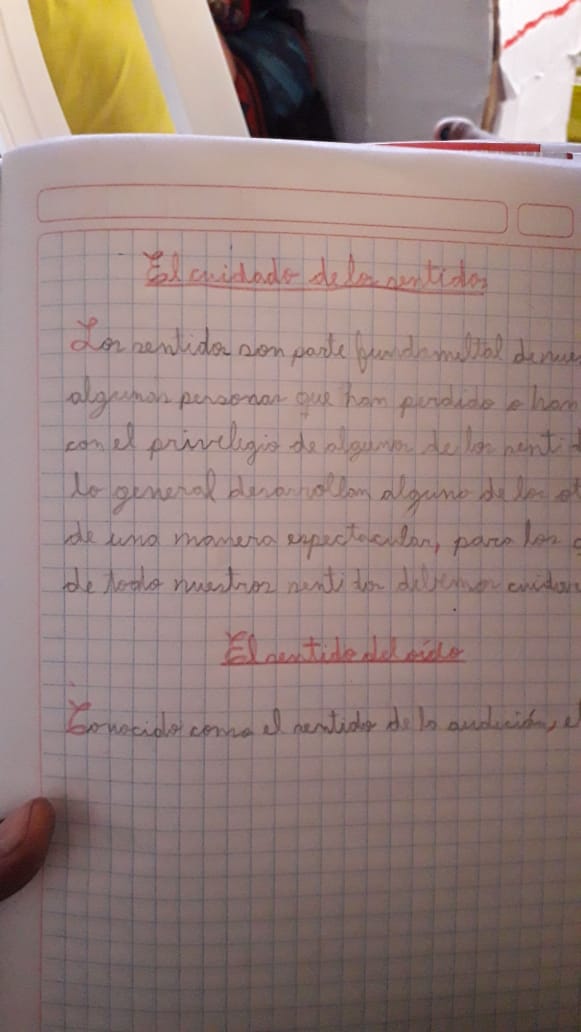 El cuidado de los sentidos
Los sentidos son parte fundamental de nues
algunas personas que han perdido o han
con el privilegio de algunos de los senti
lo general desarrollan alguno de los ot
de una manera espectacular, para los q
de todo nuestros sentidos debemos cuidar
El sentido del oído
Conocido como el sentido de la audición, el